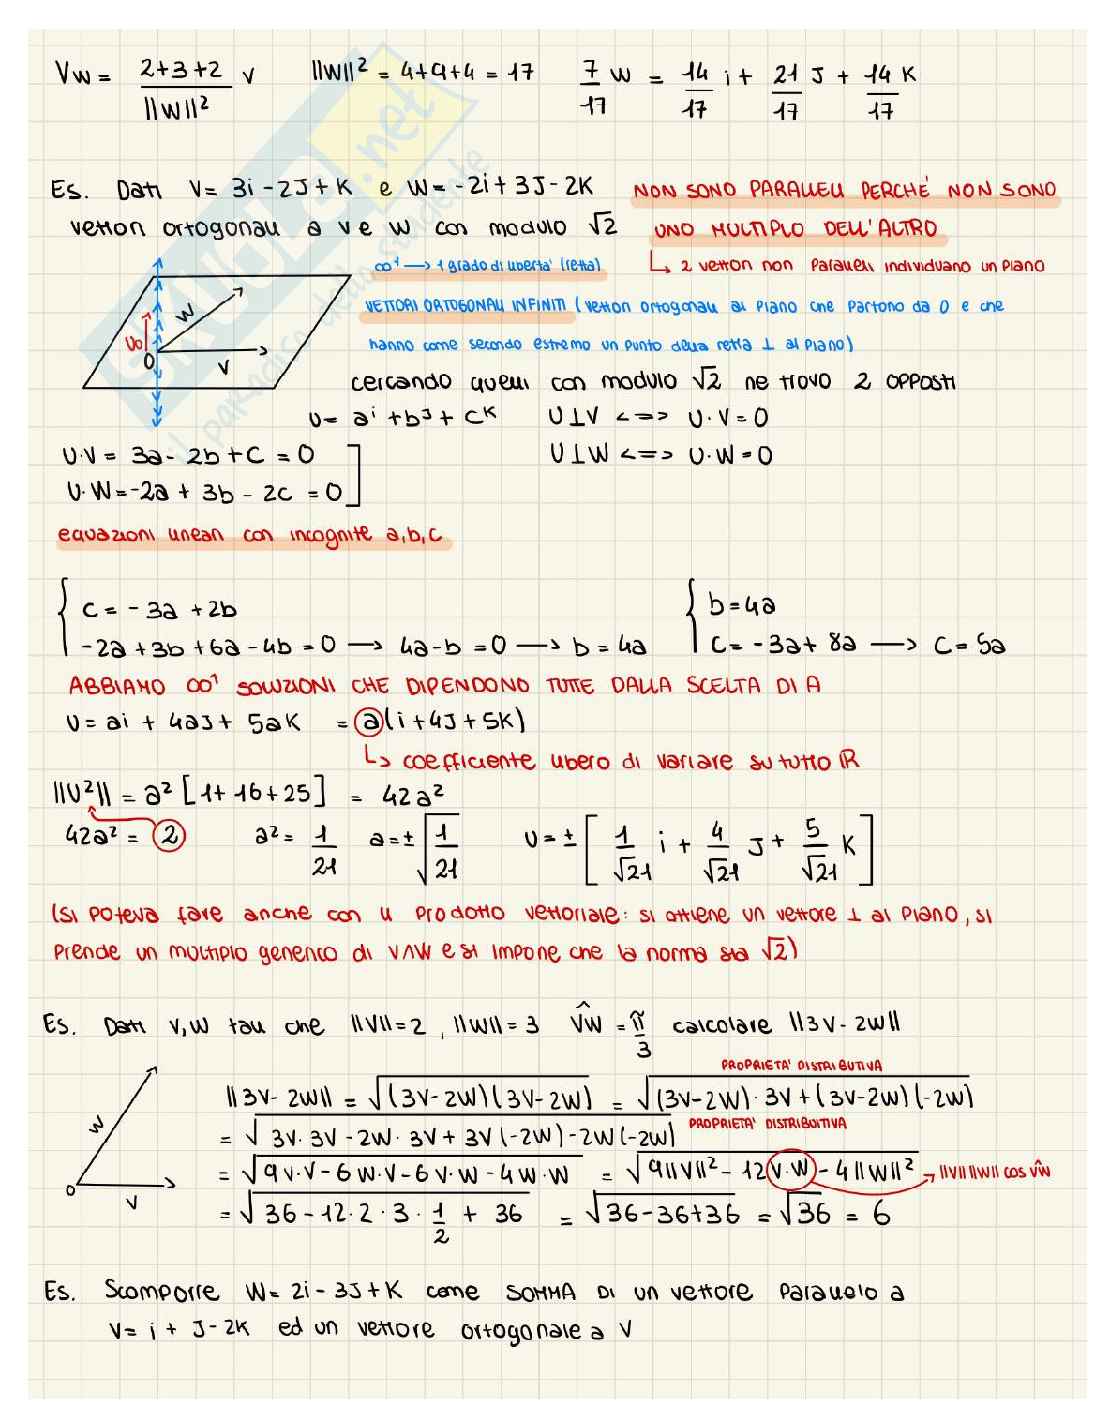 Vw = 2+3+2 / ||W||² v   ||W||² = 4+9+4 = 17   7/17 W = 14/17 i + 21/17 J + 14/17 K
Es. Dati V= 3i -2J+K e W=-2i+3J-2K   NON SONO PARALLELI PERCHÉ NON SONO
vettori ortogonali a v e w con modulo √2   UNO MULTIPLO DELL'ALTRO
↳ 2 vettori non paralleli individuano un piano
∞¹ → 1 grado di libertà (retta)
VETTORI ORTOGONALI INFINITI (vettori ortogonali al piano che partono da O e che
hanno come secondo estremo un punto della retta ⊥ al piano)
W
U0
O
V
cercando quelli con modulo √2 ne trovo 2 opposti
U= ai + bJ + cK   U⊥V <=> U·V=0
U·V= 3a - 2b + C = 0   U⊥W <=> U·W=0
U·W=-2a + 3b - 2c = 0
equazioni lineari con incognite a,b,c
{ c = -3a + 2b   { b=4a
-2a+3b+6a-4b=0 → 4a-b=0 → b=4a   C=-3a+8a → C=5a
ABBIAMO ∞¹ SOLUZIONI CHE DIPENDONO TUTTE DALLA SCELTA DI A
U= ai + 4aJ + 5aK = a(i+4J+5K)
↳ coefficiente libero di variare su tutto ℝ
||U²|| = a² [1+16+25] = 42a²
42a² = 2   a² = 1/21   a=± √1/21   U=± [ 1/√21 i + 4/√21 J + 5/√21 K ]
(si poteva fare anche con il prodotto vettoriale: si ottiene un vettore ⊥ al piano, si
prende un multiplo generico di V∧W e si impone che la norma sia √2)
Es. Dati v,w tali che ||V||=2, ||W||=3 v̂w = π/3 calcolare ||3V-2W||
PROPRIETÀ DISTRIBUTIVA
||3V-2W|| = √(3V-2W)(3V-2W) = √(3V-2W)·3V+(3V-2W)(-2W)
= √3V·3V-2W·3V+3V(-2W)-2W(-2W)   PROPRIETÀ DISTRIBUITIVA
= √9V·V-6W·V-6V·W-4W·W = √9||V||²-12 V·W -4||W||² → ||V||||W|| cos v̂w
W
O
V
= √36-12·2·3·1/2 + 36 = √36-36+36 = √36 = 6
Es. Scomporre W= 2i-3J+K come SOMMA DI un vettore parallelo a
V= i + J-2K ed un vettore ortogonale a V
SKUOLA.net
il paradiso dello studente